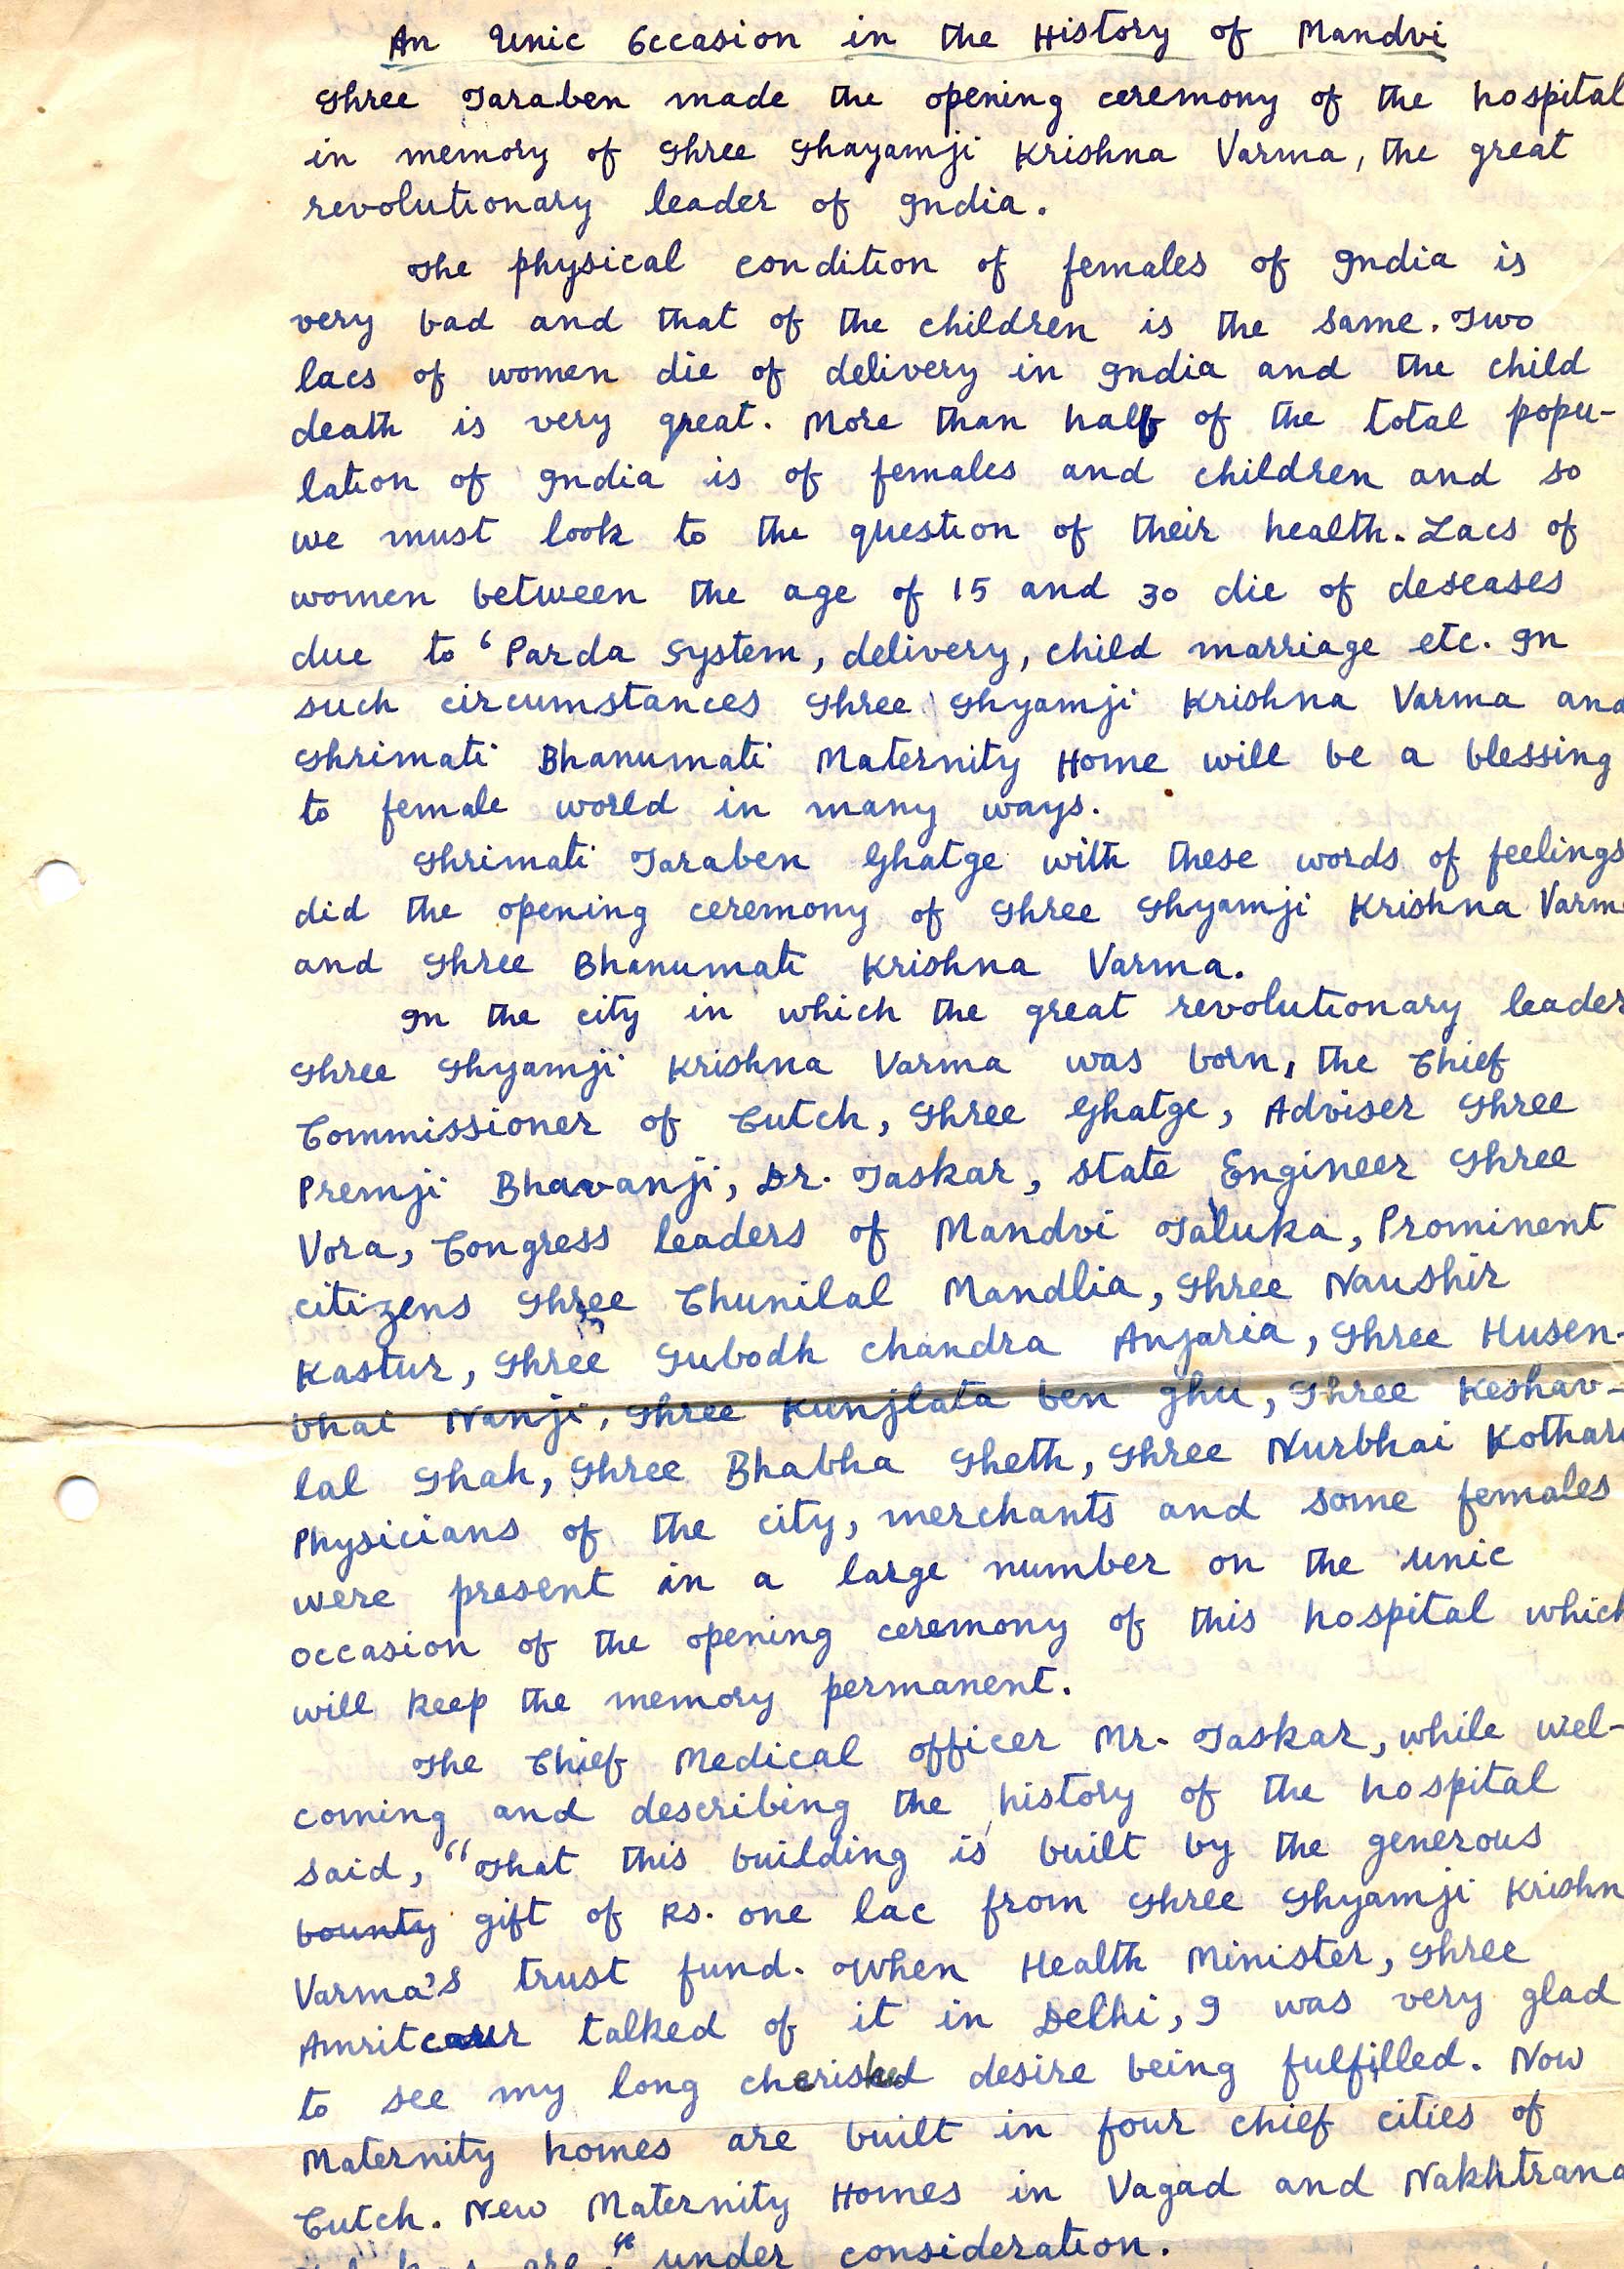 An Unic Occasion in the History of Mandvi
Shree Taraben made the opening ceremony of the hospital
in memory of Shree Shayamji Krishna Varma, the great
revolutionary leader of India.
The physical condition of females of India is
very bad and that of the children is the same. Two
lacs of women die of delivery in India and the child
death is very great. More than half of the total popu-
lation of India is of females and children and so
we must look to the question of their health. Lacs of
women between the age of 15 and 30 die of deseases
due to ‘Parda System, delivery, child marriage etc. In
such circumstances Shree Shyamji Krishna Varma and
Shrimati Bhanumati Maternity Home will be a blessing
to female world in many ways.
Shrimati Taraben Ghatge with these words of feelings
did the opening ceremony of Shree Shyamji Krishna Varma
and Shree Bhanumati Krishna Varma.
In the city in which the great revolutionary leader
Shree Shyamji Krishna Varma was born, the Chief
Commissioner of Cutch, Shree Ghatge, Adviser Shree
Premji Bhavanji, Dr. Taskar, state Engineer Shree
Vora, Congress leaders of Mandvi Taluka, Prominent
citizens Shree Chunilal Mandlia, Shree Naushir
Kastur, Shree Subodh chandra Anjaria, Shree Husen-
bhai Nanji, Shree Kunjlata ben Shu, Shree Keshav-
lal Shah, Shree Bhabha Sheth, Shree Nurbhai Kothari
Physicians of the city, merchants and some females
were present in a large number on the unic
occasion of the opening ceremony of this hospital which
will keep the memory permanent.
The Chief Medical officer Mr. Taskar, while wel-
coming and describing the history of the hospital
said, “That this building is built by the generous
bounty gift of Rs. one lac from Shree Shyamji Krishn
Varma's trust fund. When Health Minister, Shree
Amritcaur talked of it in Delhi, I was very glad
to see my long cherished desire being fulfilled. Now
Maternity homes are built in four chief cities of
Cutch. New Maternity Homes in Vagad and Nakhtrana
are" under consideration.